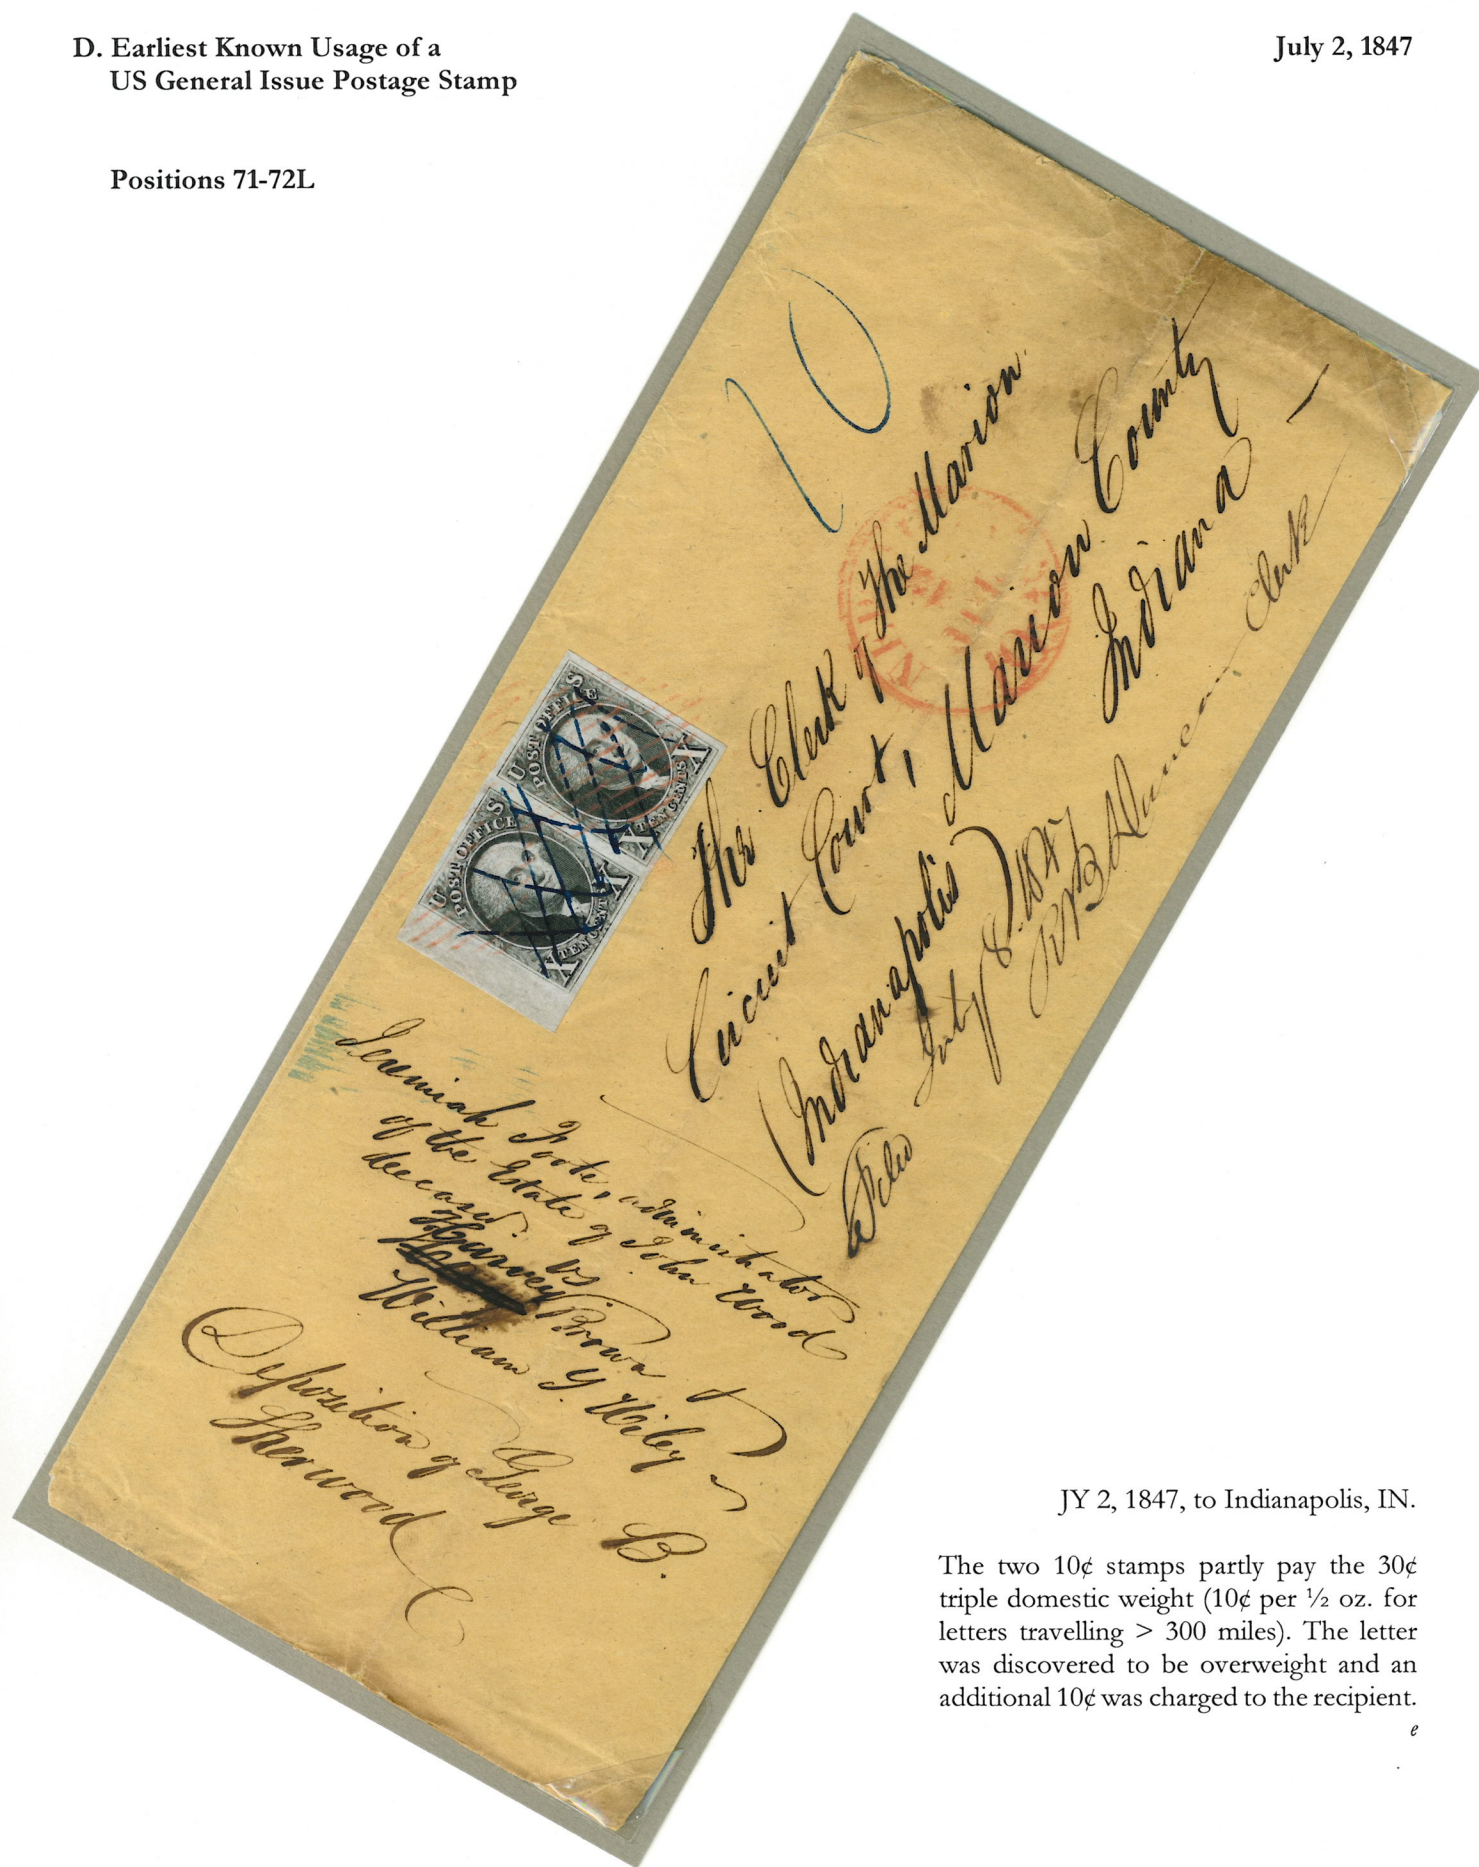 D. Earliest Known Usage of a
US General Issue Postage Stamp
July 2, 1847
Positions 71-72L
10
The Clerk of The Marion
Circuit Court, Marion County
(Indianapolis) Indiana
Filed July 8. 1847
Duncan Clerk
NEW
U S
POST OFFICE
X TEN CENTS X
U S
POST OFFICE
X TEN CENTS X
Jeremiah Foote, administrator
of the Estate of John Wood
deceased. vs
Harvey Brown &
William Y. Wiley
Deposition of George B.
Sherwood
JY 2, 1847, to Indianapolis, IN.
The two 10¢ stamps partly pay the 30¢
triple domestic weight (10¢ per ½ oz. for
letters travelling > 300 miles). The letter
was discovered to be overweight and an
additional 10¢ was charged to the recipient.
e